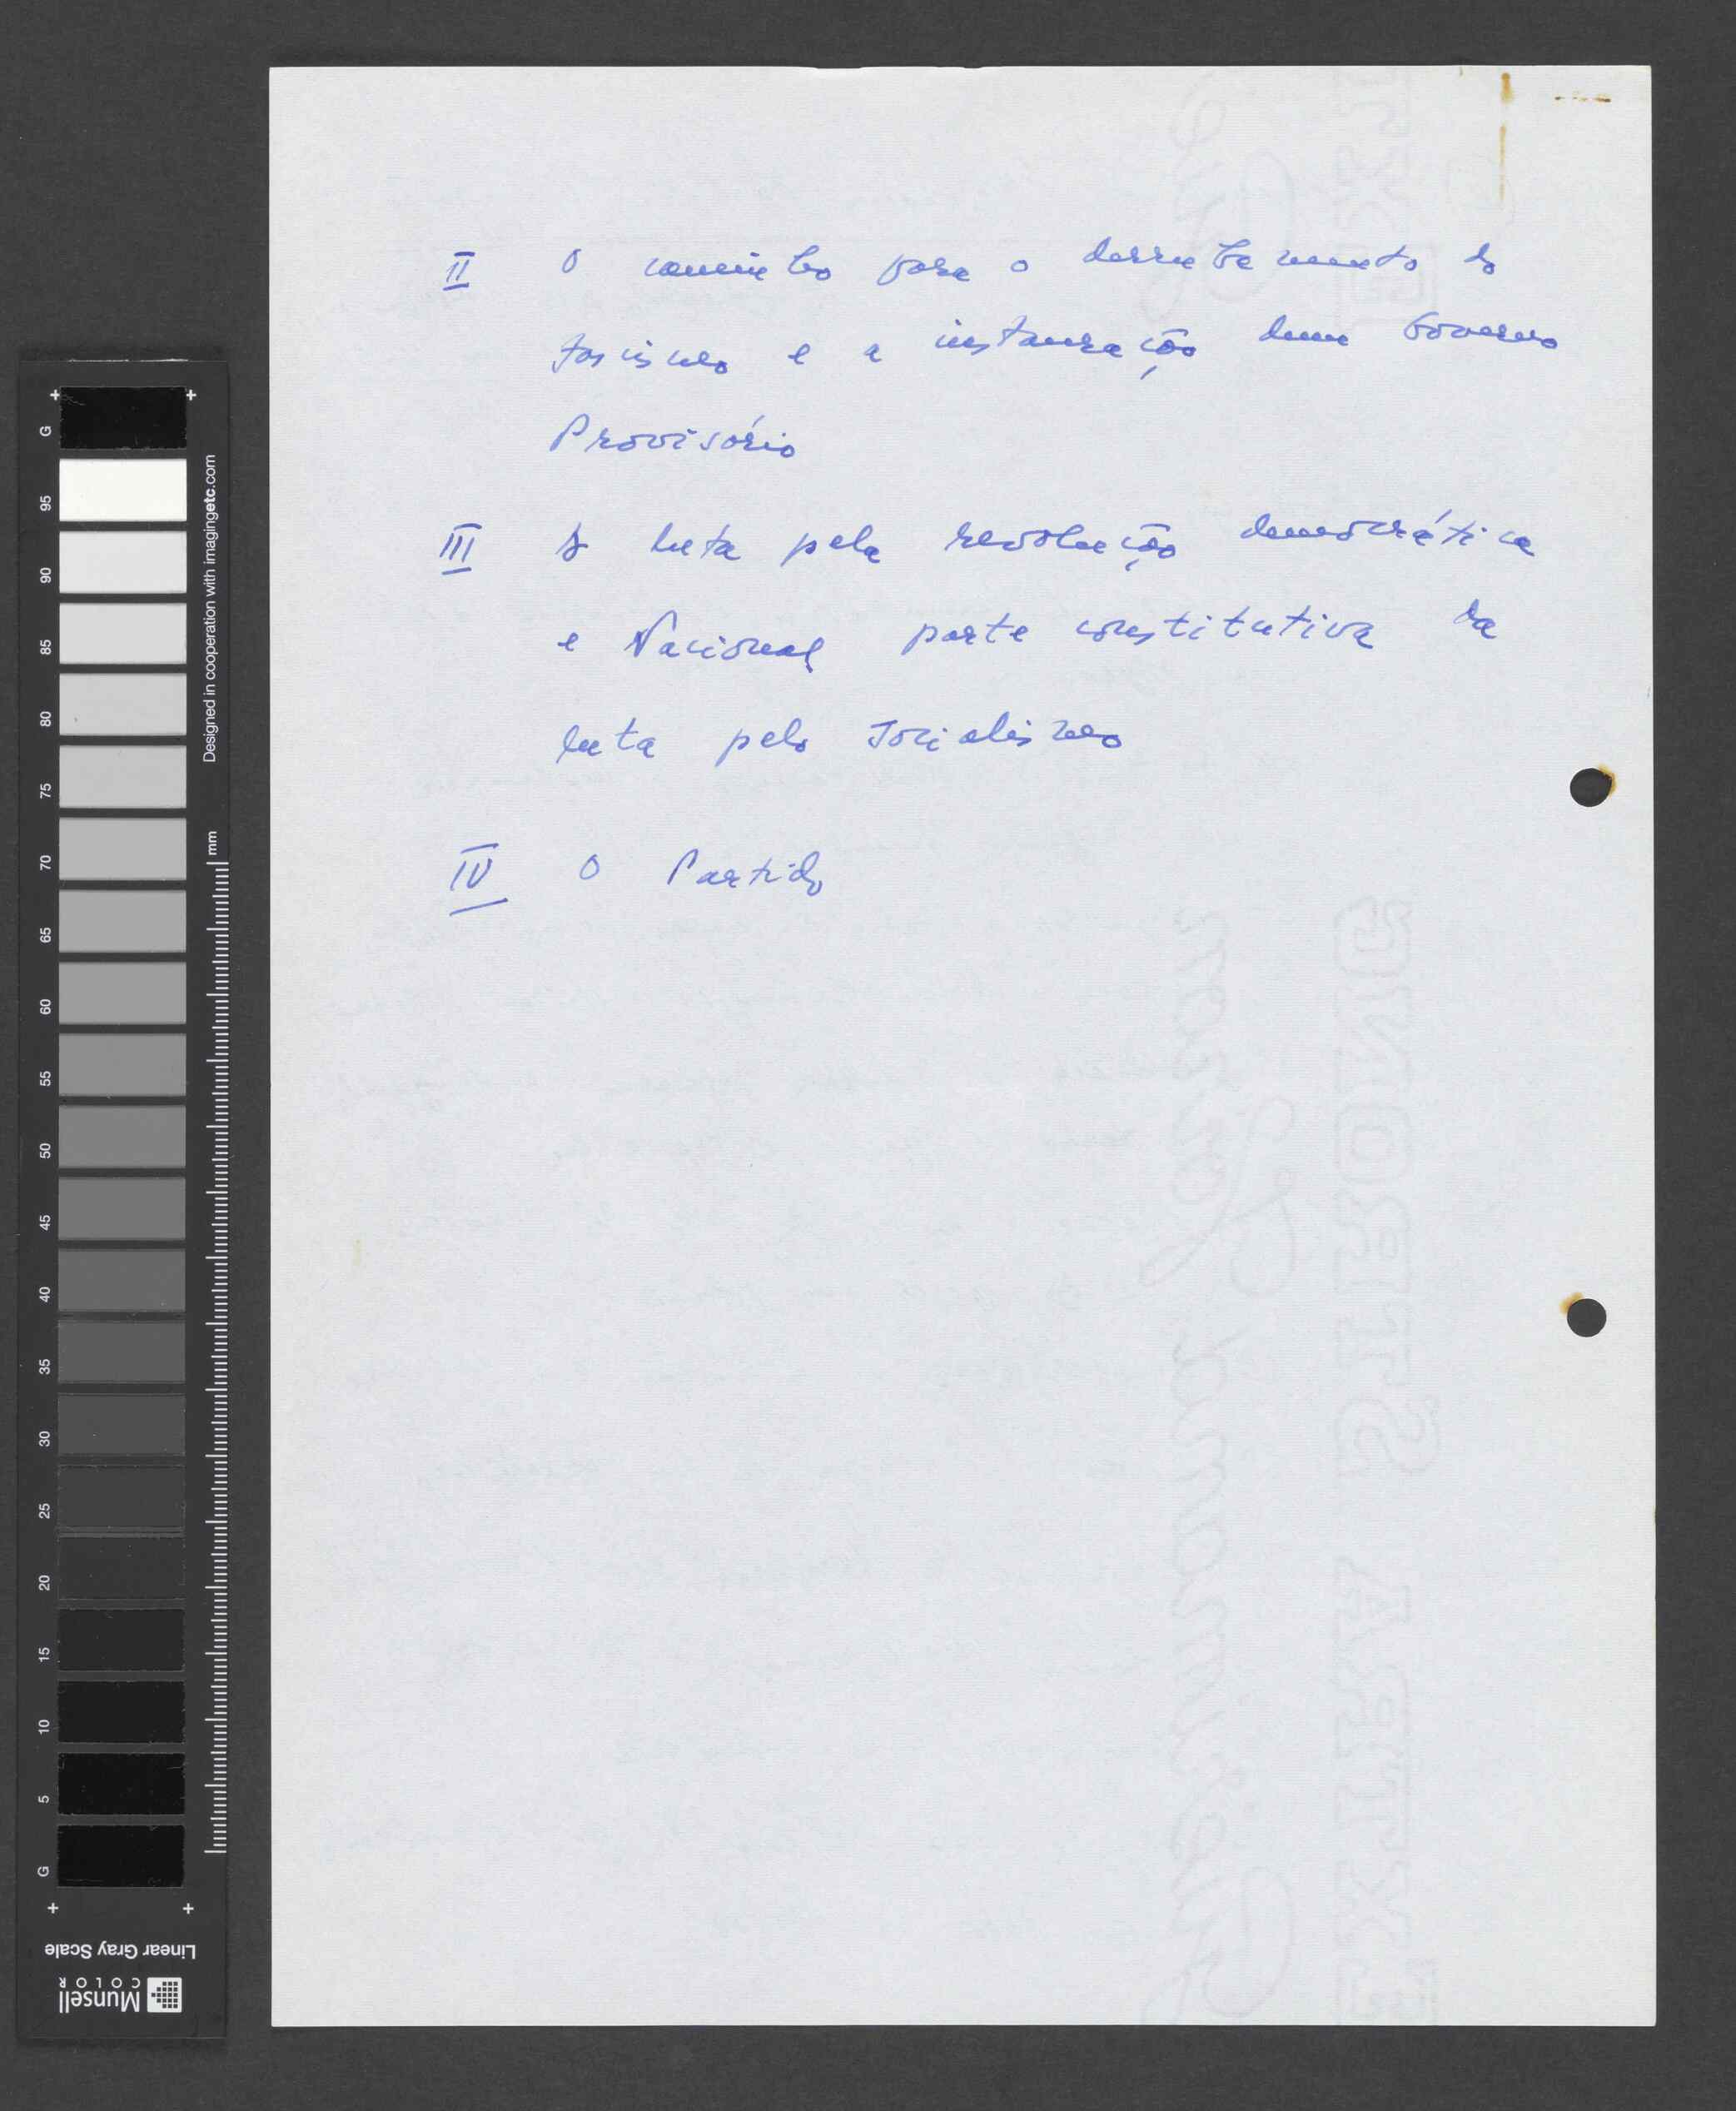 II O caminho para o derrubamento do
fascismo e a instauração dum Governo
Provisório
III A luta pela revolução democrática
e Nacional parte constitutiva da
luta pelo Socialismo
IV O Partido
G
95
90
85
80
75
70
65
60
55
50
45
40
35
30
25
20
15
10
5
G
Designed in cooperation with imagingetc.com
mm
Linear Gray Scale
Munsell
COLOR
EXTRA STRONG